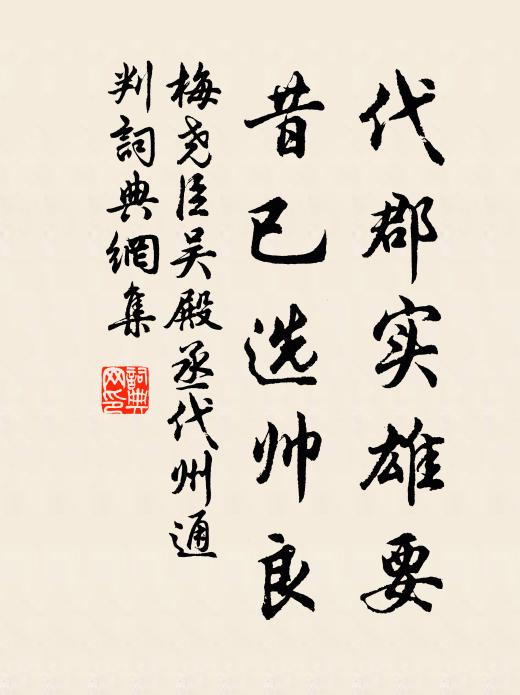 代郡实雄要
昔已选帅良
梅尧臣吴殿丞代州通
判詞典網集
詞典網印